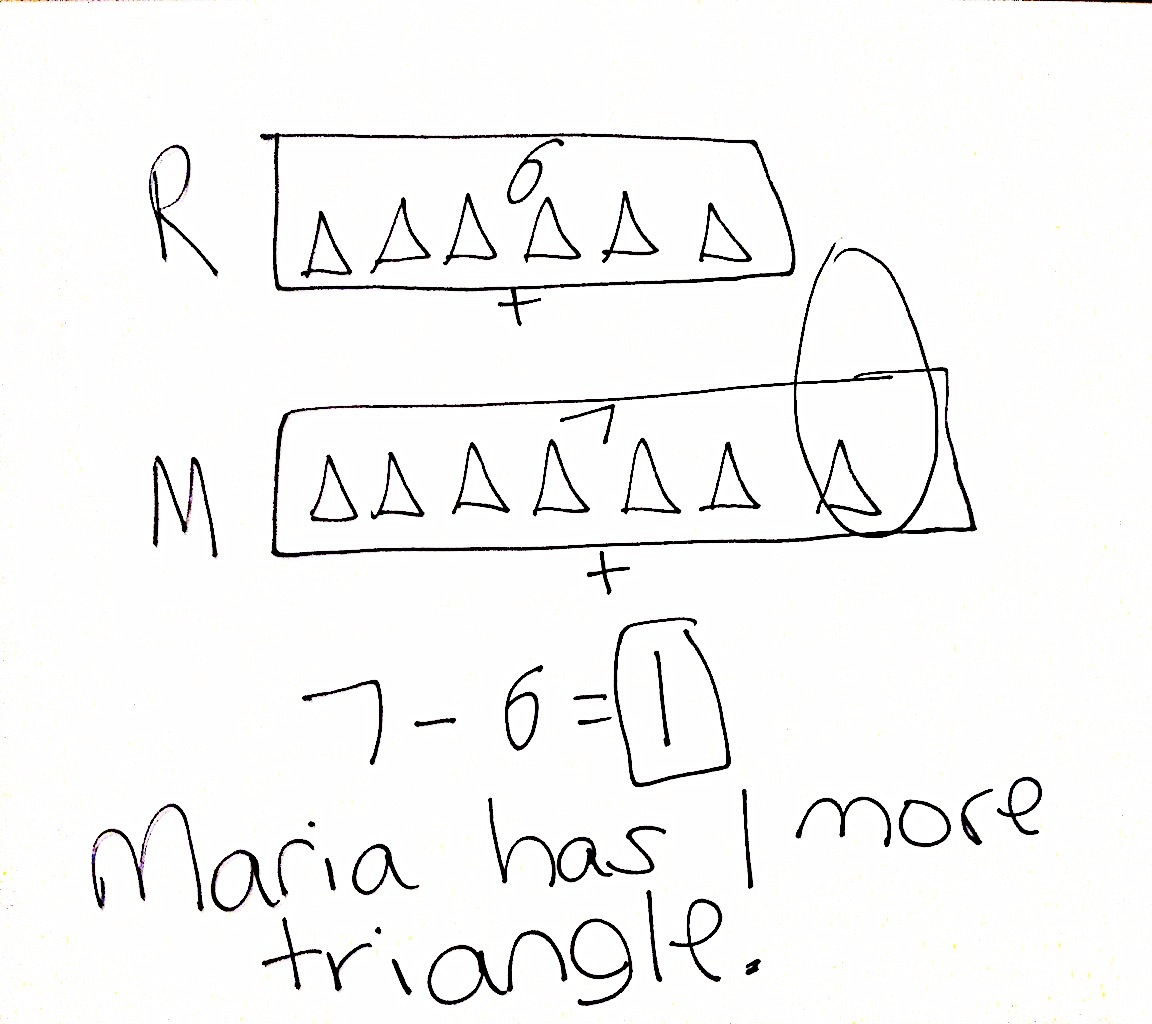 R 6
t
M 7
t
7 - 6 = 1
Maria has 1 more
triangle.